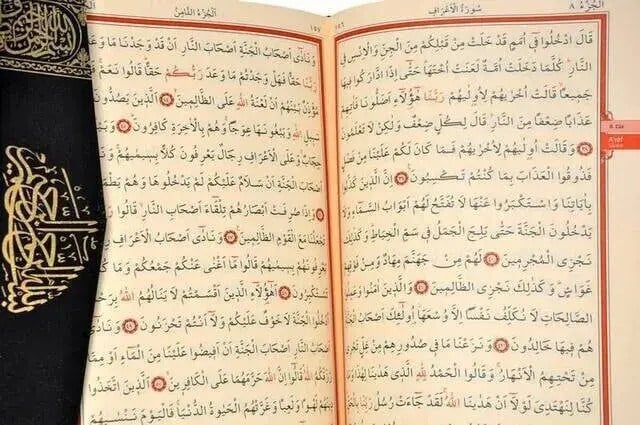 الجزء ٨
سورة الاعراف
قَالَ ادْخُلُوا فِي أُمَمٍ قَدْ خَلَتْ مِنْ قَبْلِكُمْ مِنَ الْجِنِّ وَالْإِنْسِ فِي
النَّارِ كُلَّمَا دَخَلَتْ أُمَّةٌ لَعَنَتْ أُخْتَهَا حَتَّى إِذَا ادَّارَكُوا فِيهَا
جَمِيعًا قَالَتْ أُخْرٰيهُمْ لِأُولٰيهُمْ رَبَّنَا هٰؤُلَاءِ أَضَلُّونَا فَاٰتِهِمْ
عَذَابًا ضِعْفًا مِنَ النَّارِ قَالَ لِكُلٍّ ضِعْفٌ وَلٰكِنْ لَا تَعْلَمُونَ
وَقَالَتْ أُولٰيهُمْ لِأُخْرٰيهُمْ فَمَا كَانَ لَكُمْ عَلَيْنَا مِنْ فَضْلٍ
فَذُوقُوا الْعَذَابَ بِمَا كُنْتُمْ تَكْسِبُونَ إِنَّ الَّذِينَ كَذَّبُوا
بِاٰيَاتِنَا وَاسْتَكْبَرُوا عَنْهَا لَا تُفَتَّحُ لَهُمْ أَبْوَابُ السَّمَاءِ وَلَا
يَدْخُلُونَ الْجَنَّةَ حَتَّى يَلِجَ الْجَمَلُ فِي سَمِّ الْخِيَاطِ وَكَذٰلِكَ
نَجْزِي الْمُجْرِمِينَ لَهُمْ مِنْ جَهَنَّمَ مِهَادٌ وَمِنْ فَوْقِهِمْ
غَوَاشٍ وَكَذٰلِكَ نَجْزِي الظَّالِمِينَ وَالَّذِينَ اٰمَنُوا وَعَمِلُوا
الصَّالِحَاتِ لَا نُكَلِّفُ نَفْسًا إِلَّا وُسْعَهَا أُولٰئِكَ أَصْحَابُ الْجَنَّةِ
هُمْ فِيهَا خَالِدُونَ وَنَزَعْنَا مَا فِي صُدُورِهِمْ مِنْ غِلٍّ تَجْرِي
مِنْ تَحْتِهِمُ الْأَنْهَارُ وَقَالُوا الْحَمْدُ لِلّٰهِ الَّذِي هَدٰينَا لِهٰذَا وَمَا
كُنَّا لِنَهْتَدِيَ لَوْلَا أَنْ هَدٰينَا اللّٰهُ لَقَدْ جَاءَتْ رُسُلُ رَبِّنَا بِالْحَقِّ
8. Cüz
A'raf
الجزء الثامن
وَنَادٰى أَصْحَابُ الْجَنَّةِ أَصْحَابَ النَّارِ أَنْ قَدْ وَجَدْنَا مَا وَعَدَنَا
رَبُّنَا حَقًّا فَهَلْ وَجَدْتُمْ مَا وَعَدَ رَبُّكُمْ حَقًّا قَالُوا نَعَمْ
مُؤَذِّنٌ بَيْنَهُمْ أَنْ لَعْنَةُ اللّٰهِ عَلَى الظَّالِمِينَ الَّذِينَ يَصُدُّونَ
سَبِيلِ اللّٰهِ وَيَبْغُونَهَا عِوَجًا وَهُمْ بِالْاٰخِرَةِ كَافِرُونَ
حِجَابٌ وَعَلَى الْأَعْرَافِ رِجَالٌ يَعْرِفُونَ كُلًّا بِسِيمٰيهُمْ وَنَادَوْا
أَصْحَابَ الْجَنَّةِ أَنْ سَلَامٌ عَلَيْكُمْ لَمْ يَدْخُلُوهَا وَهُمْ يَطْمَعُونَ
وَإِذَا صُرِفَتْ أَبْصَارُهُمْ تِلْقَاءَ أَصْحَابِ النَّارِ قَالُوا رَبَّنَا
تَجْعَلْنَا مَعَ الْقَوْمِ الظَّالِمِينَ وَنَادٰى أَصْحَابُ الْأَعْرَافِ رِجَالًا
يَعْرِفُونَهُمْ بِسِيمٰيهُمْ قَالُوا مَا أَغْنٰى عَنْكُمْ جَمْعُكُمْ وَمَا كُنْتُمْ
تَسْتَكْبِرُونَ أَهٰؤُلَاءِ الَّذِينَ أَقْسَمْتُمْ لَا يَنَالُهُمُ اللّٰهُ بِرَحْمَةٍ
ادْخُلُوا الْجَنَّةَ لَا خَوْفٌ عَلَيْكُمْ وَلَا أَنْتُمْ تَحْزَنُونَ وَنَادٰى
أَصْحَابُ النَّارِ أَصْحَابَ الْجَنَّةِ أَنْ أَفِيضُوا عَلَيْنَا مِنَ الْمَاءِ أَوْ مِمَّا
رَزَقَكُمُ اللّٰهُ قَالُوا إِنَّ اللّٰهَ حَرَّمَهُمَا عَلَى الْكَافِرِينَ الَّذِينَ اتَّخَذُوا
دِينَهُمْ لَهْوًا وَلَعِبًا وَغَرَّتْهُمُ الْحَيٰوةُ الدُّنْيَا فَالْيَوْمَ نَنْسٰيهُمْ